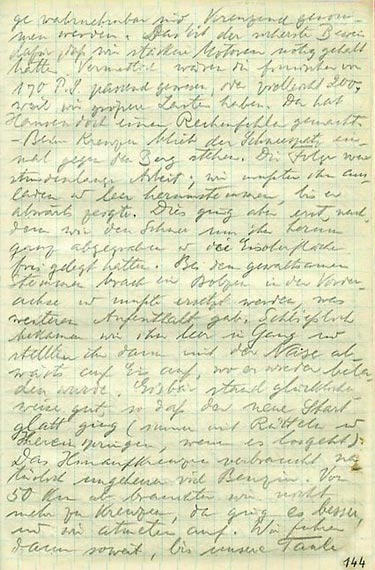 ge wahrnehmbar sind, kreuzend genom-
men werden. Das ist der sicherste Beweis
dafür, daß wir stärkere Motoren nötig gehabt
hätten. Vermutlich wären die
170 P.S. passend gewesen, oder vielleicht 200,
weil wir größere Lasten haben. Da hat
doch einen Rechenfehler gemacht
- Beim Kreuzen blieb der Schneespatz ein-
mal gegen den Berg stehen. Die Folge war
stundenlange Arbeit; wir mußten ihn aus-
laden u leer herumstemmen, bis er
abwärts zeigte. Dies ging aber erst, nach-
dem wir den Schnee um ihn herum
ganz abgegraben u die Eisoberfläche
frei gelegt hatten. Bei dem gewaltsamen
Stemmen brach ein Bolzen in der Vorder-
achse u mußte ersetzt werden, was
weiteren Aufenthalt gab. Schließlich
bekamen wir ihn leer in Gang u
stellten ihn dann mit der Nase ab-
wärts auf Eis auf, wo er wieder bela-
den wurde. Eisbär stand glücklicher-
weise gut, so daß der neue Start
glatt ging (immer mit Rütteln u
Hereinspringen, wenn es losgeht).
Das Hinaufkreuzen verbraucht na-
türlich ungeheuer viel Benzin. Von
50 km ab brauchten wir nicht
mehr zu kreuzen, da ging es besser,
und wir atmeten auf. Wir fuhren
dann soweit, bis unsere Tanks
144